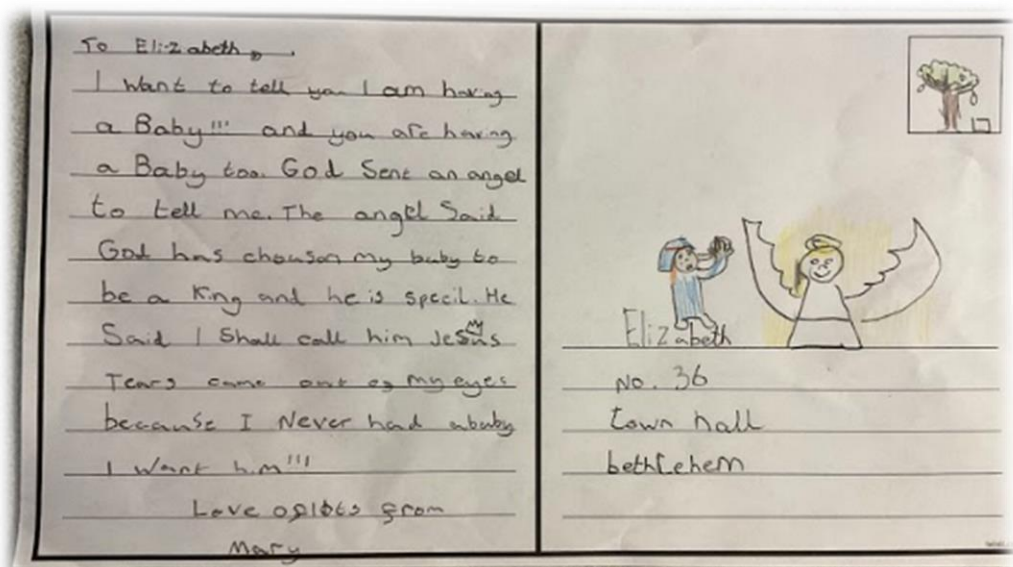 To Elizabeth,
I want to tell you I am having
a Baby!!! and you are having
a Baby too. God Sent an angel
to tell me. The angel Said
God has chouson my baby to
be a King and he is specil. He
Said I Shall call him Jesus
Tears came out of my eyes
because I Never had ababy
I want him!!!
Love oflots from
Mary
Elizabeth
No. 36
town hall
bethlehem